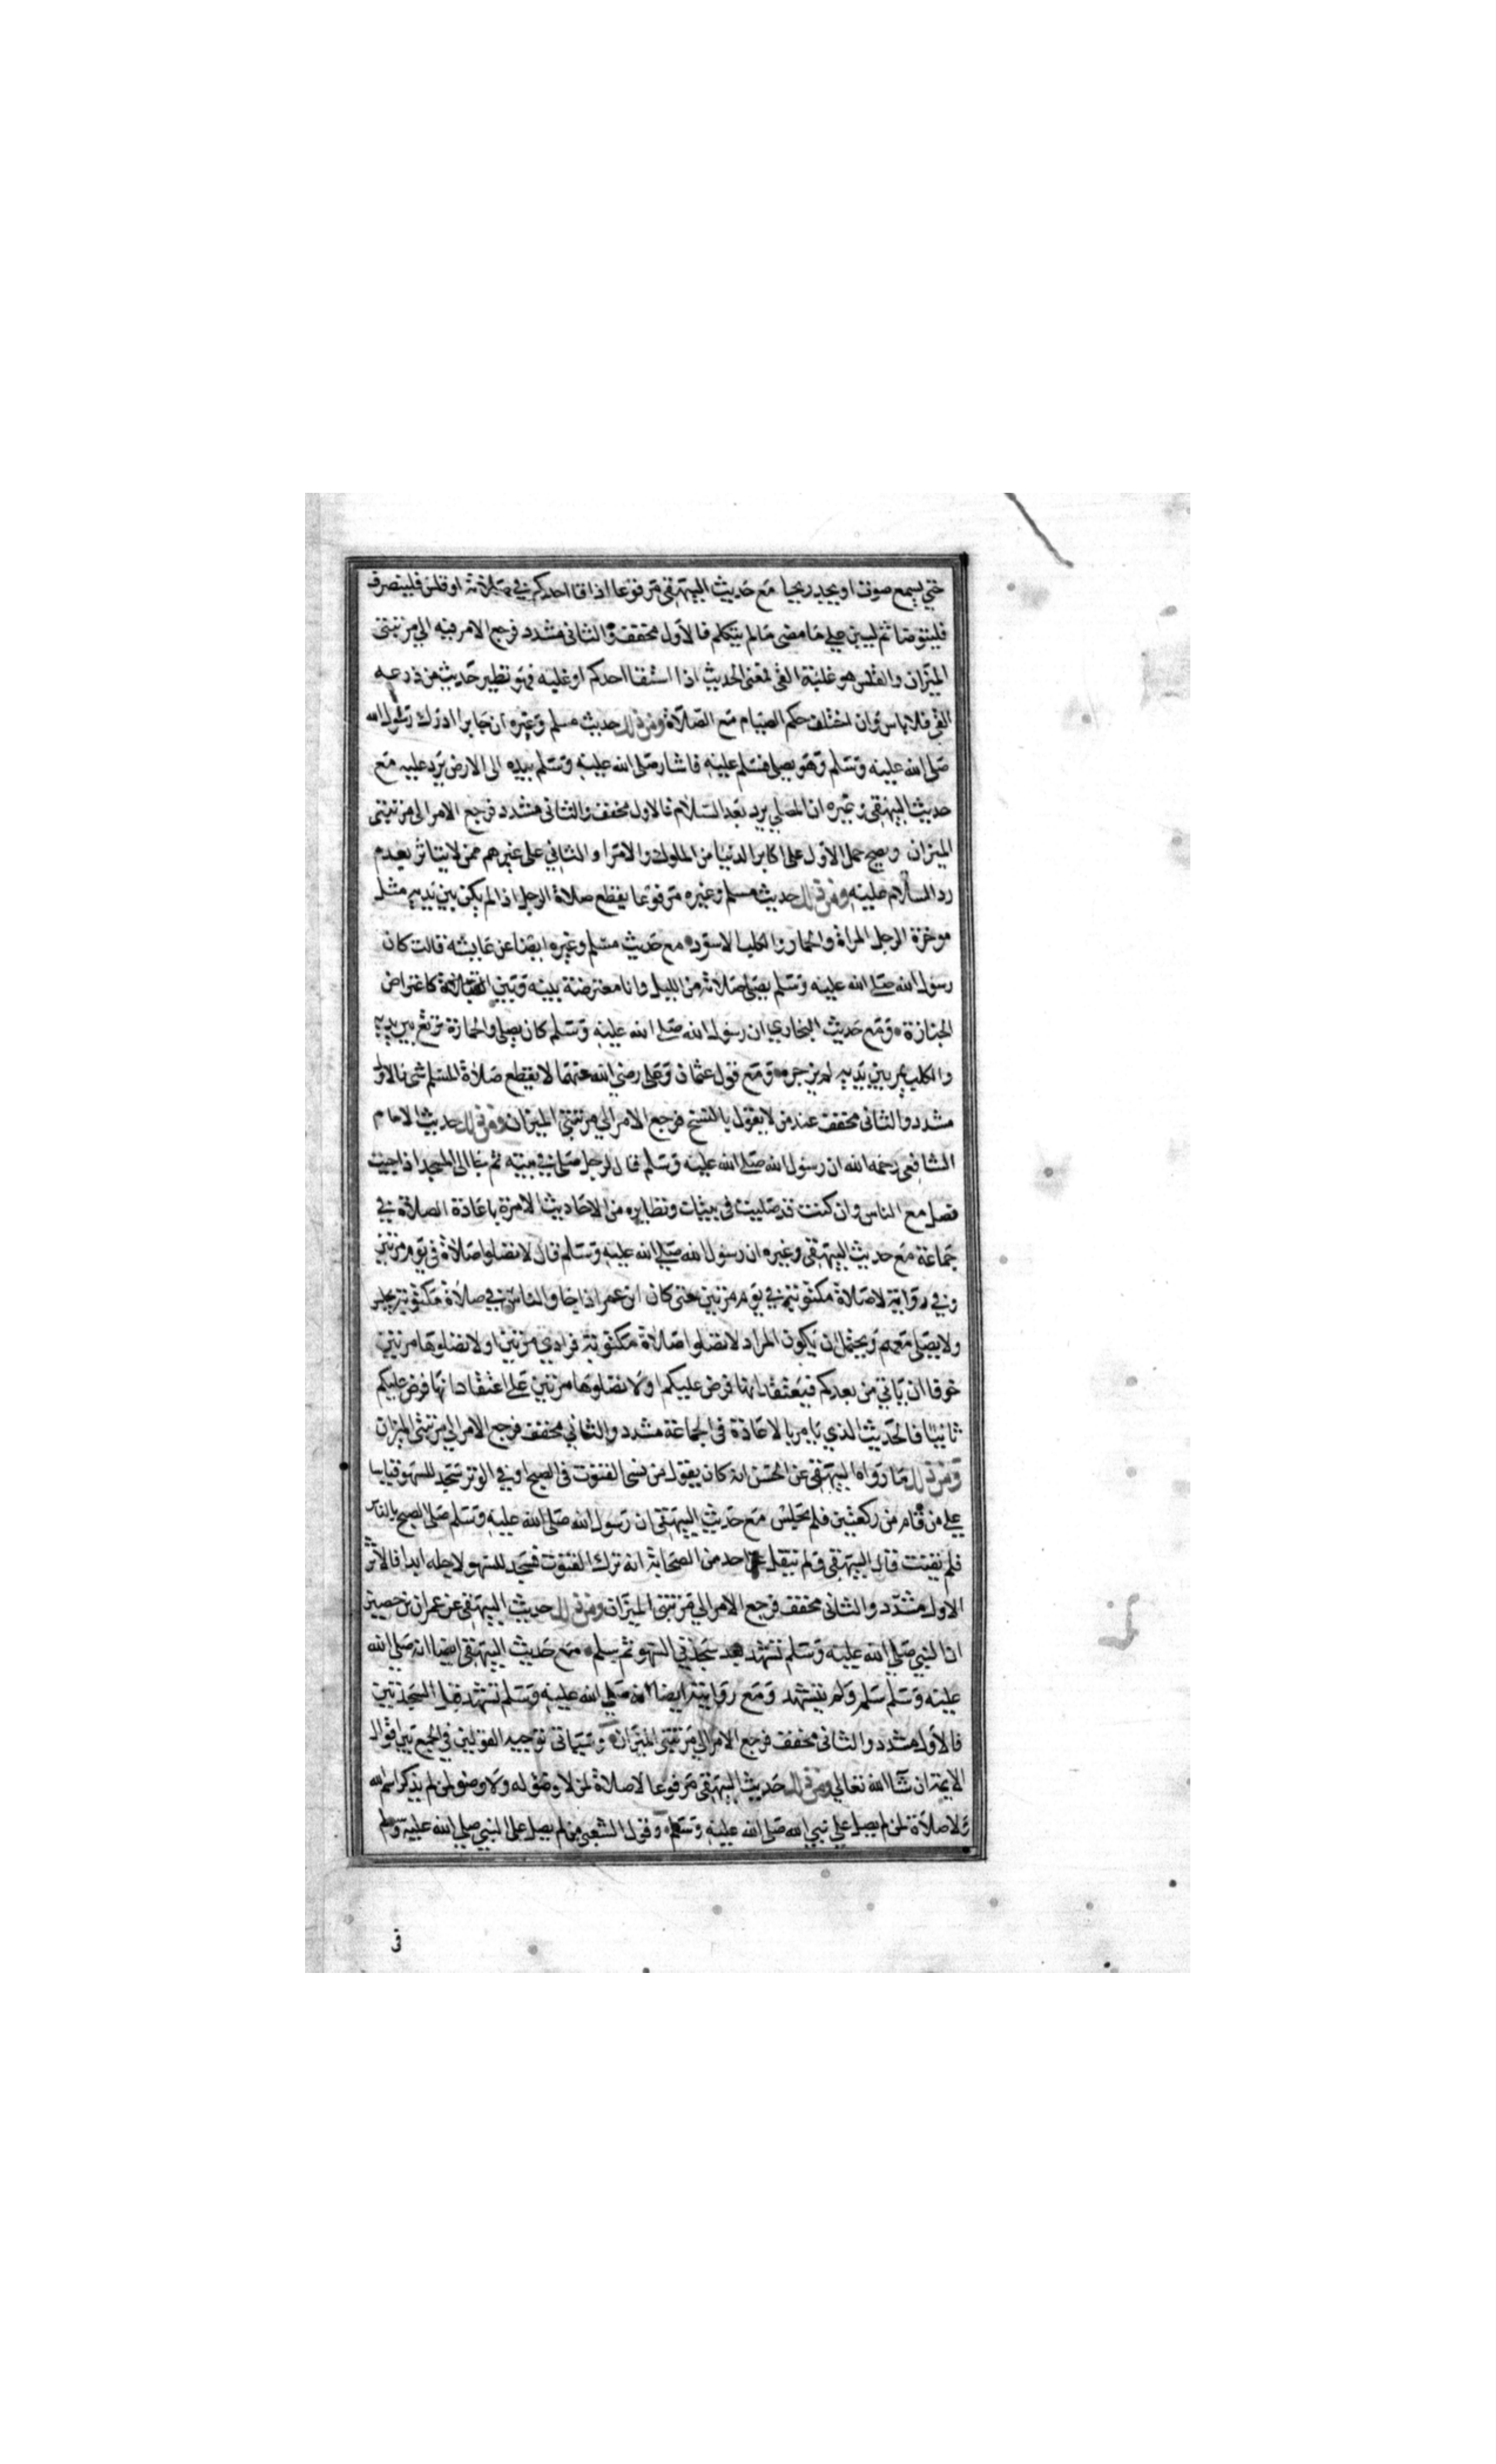 حتي يسمع صوتا او يجد ريحيا مع حديث البيهقي مرفوعا اذا قا احدكم في صلاته او قلس فلينصرف
فليتوضا ثم ليبن علي ما مضى مالم يتكلم فالاول مخفف والثاني مشدد فرجع الامر فيه الي مرتبتى
الميزان والقلس هو غلبة القي لمعنى الحديث اذا استقا احدكم او غلبه فهو نظير حديث من ذرعه
القي فلا باس وان اختلف حكم الصيام مع الصلاة ومن ذلك حديث مسلم وغيره ان جابرا ادرك رسول الله
صلى الله عليه وسلم وهو يصلي فسلم عليه فاشار صلى الله عليه وسلم بيده الى الارض يرد عليه مع
حديث البيهقي وغيره ان المصلي يرد بعد السلام فالاول مخفف والثاني مشدد فرجع الامر الى مرتبتى
الميزان ويصح حمل الاول على اكابر الدنيا من الملوك والامرا والثاني على غيرهم ممن لا يتاثر بعدم
رد السلام عليه ومن ذلك حديث مسلم وغيره مرفوعا يقطع صلاة الرجل اذا لم يكن بين يديه مثل
موخرة الرحل المراة والحمار والكلب الاسود مع حديث مسلم وغيره ايضا عن عايشة قالت كان
رسول الله صلى الله عليه وسلم يصلي صلاته من الليل وانا معترضة بينه وبين القبلة كاعتراض
الجنازة ومع حديث البخاري ان رسول الله صلى الله عليه وسلم كان يصلي والحمارة ترتع بين يديه
والكلب يمر بين يديه لم يزجره ومع قول عثمان وعلي رضي الله عنهما لا يقطع صلاة المسلم شى فالاول
مشدد والثاني مخفف عند من لا يقول بالنسخ فرجع الامر الي مرتبتى الميزان ومن ذلك حديث الامام
الشافعي رحمه الله ان رسول الله صلى الله عليه وسلم قال لرجل صلى في بيته ثم جا الى المسجد اذا جيت
فصل مع الناس وان كنت قد صليت في بيتك ونظايره من الاحاديث الامرة باعادة الصلاة في
جماعة مع حديث البيهقي وغيره ان رسول الله صلي الله عليه وسلم قال لا تصلوا صلاة في يوم مرتين
وفي رواية لا صلاة مكتوبة في يوم مرتين حتى كان ابن عمر اذا جا والناس في صلاة مكتوبة يجلس
ولا يصلي معهم ويحتمل ان يكون المراد لا تصلوا صلاة مكتوبة فرادي مرتين او لا تصلوها مرتين
خوفا ان ياتي من بعدكم فيعتقد انها فرض عليكم او لا تصلوها مرتين على اعتقاد انها فرض عليكم
ثانيا فالحديث الذي يامر بالاعادة في الجماعة مشدد والثاني مخفف فرجع الامر الي مرتبتى الميزان
ومن ذلك ما رواه البيهقي عن الحسن انه كان يقول من نسى القنوت في الصبح او في الوتر سجد للسهو قياسا
علي من قام من ركعتين فلم يجلس مع حديث البيهقي ان رسول الله صلى الله عليه وسلم صلى الصبح بالناس
فلم يقنت قال البيهقي ولم ينقل عن احد من الصحابة انه ترك القنوت فسجد للسهو لاجله ابدا فالاثر
الاول مشدد والثاني مخفف فرجع الامر الي مرتبتى الميزان ومن ذلك حديث البيهقي عن عمران بن حصين
ان النبي صلي الله عليه وسلم تشهد بعد سجدتي السهو ثم سلم مع حديث البيهقي ايضا انه صلي الله
عليه وسلم سلم ولم يتشهد ومع رواية ايضا انه صلي الله عليه وسلم تشهد قبل السجدتين
فالاول مشدد والثاني مخفف فرجع الامر الي مرتبتى الميزان وسياتي توجيه القولين في الجمع بين اقوال
الايمة ان شا الله تعالي ومن ذلك حديث البيهقي مرفوعا لا صلاة لمن لا وضو له ولا وضو لمن لم يذكر اسم الله
ولا صلاة لمن لم يصل علي نبي الله صلى الله عليه وسلم وقول الشعبي من لم يصل على النبي صلي الله عليه وسلم
في